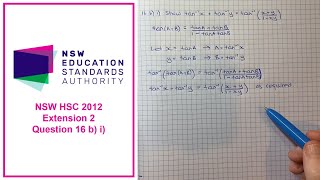 NSW
EDUCATION
STANDARDS
AUTHORITY
NSW HSC 2012
Extension 2
Question 16 b) i)
16 b) i) Show tan⁻¹x + tan⁻¹y = tan⁻¹(x+y / 1-xy)
tan(A+B) = tanA + tanB / 1 - tanAtanB
Let x = tanA → A = tan⁻¹x
y = tanB → B = tan⁻¹y
tan⁻¹(tan(A+B)) = tan⁻¹(tanA + tanB / 1 - tanAtanB)
tan⁻¹x + tan⁻¹y = tan⁻¹(x+y / 1-xy) as required